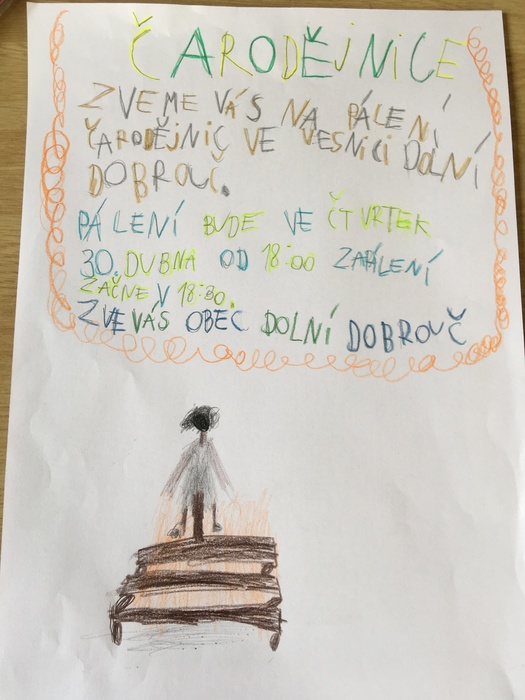 ČARODĚJNICE
ZVEME VÁS NA PÁLENÍ
ČARODĚJNIC VE VESNICI DOLNÍ
DOBROUČ.
PÁLENÍ BUDE VE ČTVRTEK
30. DUBNA OD 18:00 ZAPÁLENÍ
ZAČNE V 18:30.
ZVE VÁS OBEC DOLNÍ DOBROUČ